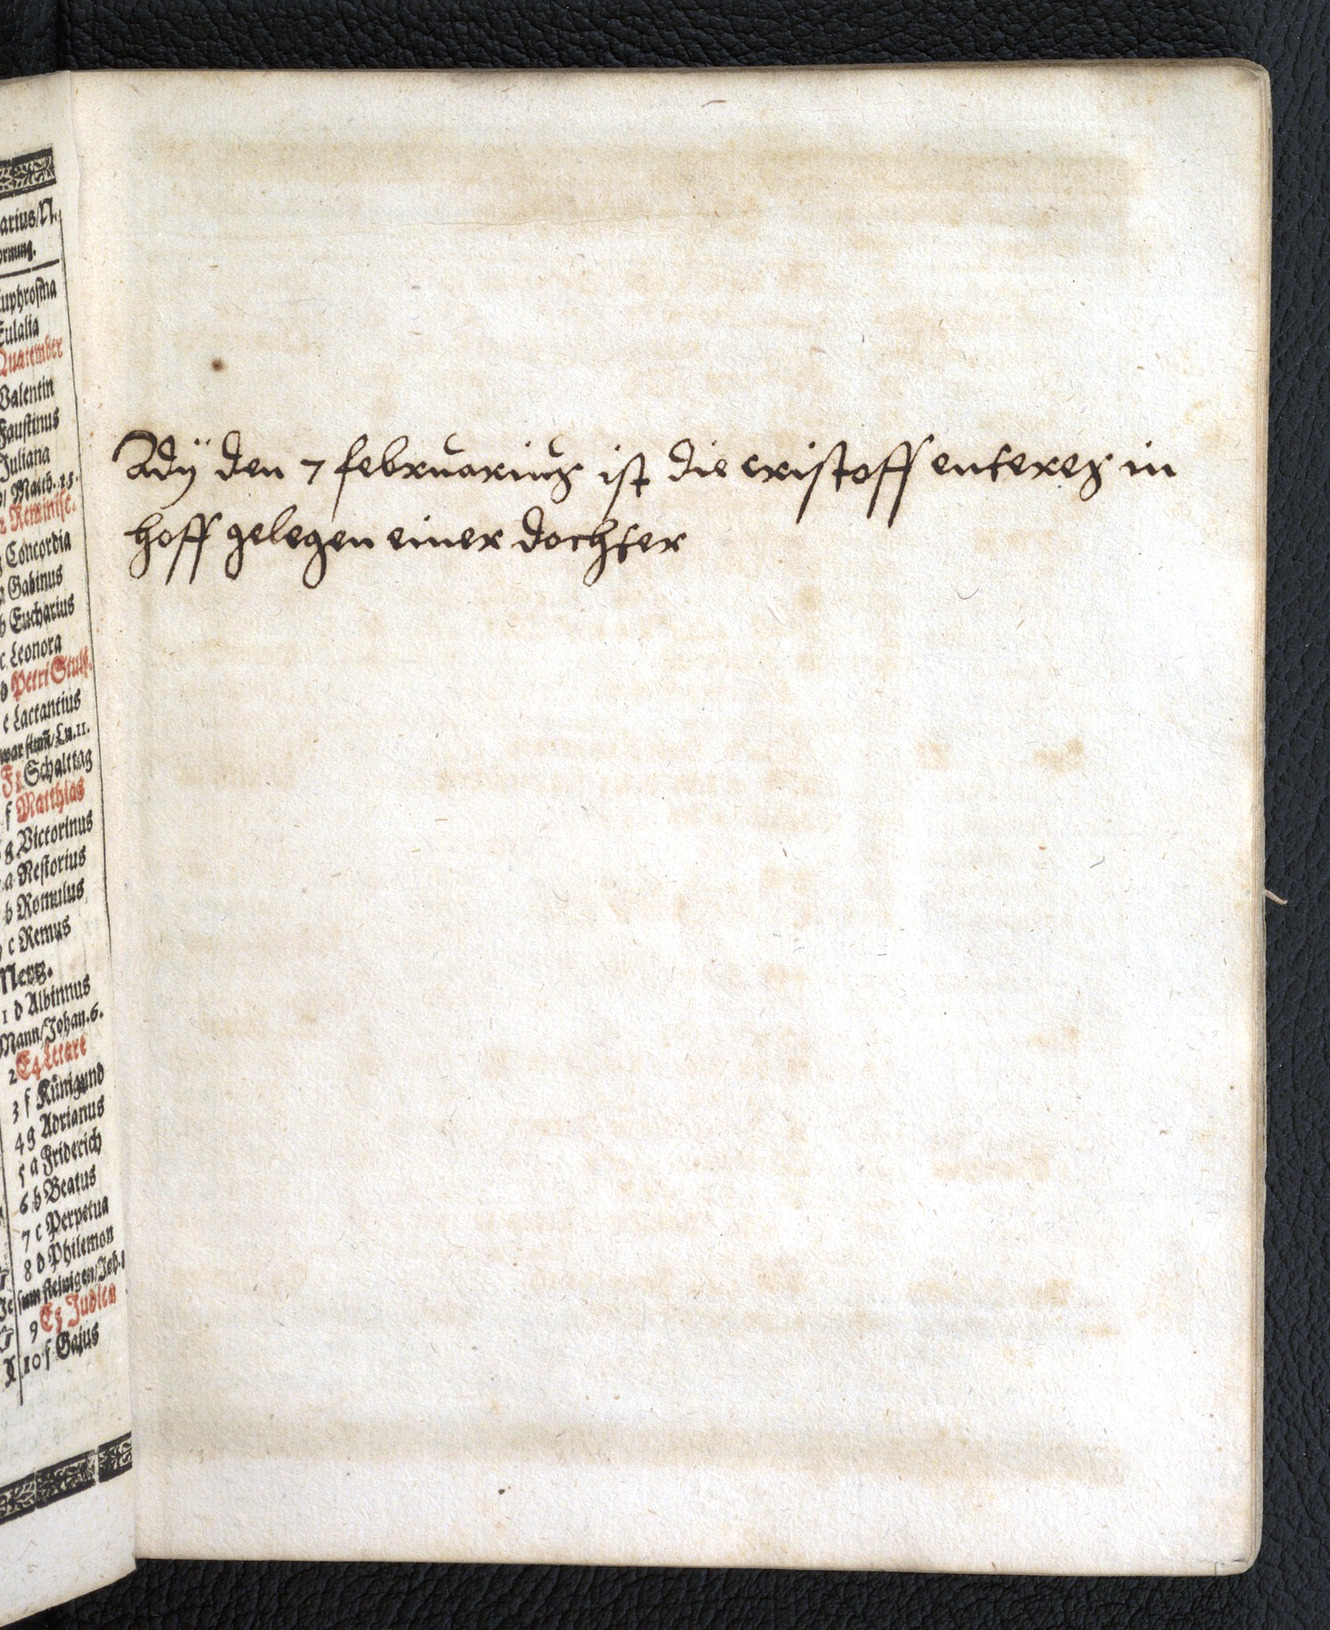 arius/N.
ornung.
Euphrosina
Eulalia
Quatember
Valentin
Faustinus
Juliana
Matth. 15.
2 Reminisc.
g Concordia
a Gabinus
b Eucharius
c Leonora
d Petri Stulf.
e Lactantius
war stum/Lu. 11.
F3 Schalttag
f Matthias
g Victorinus
a Nestorius
b Romulus
c Remus
Mertz.
1 d Albinnus
Mann/Johan. 6.
2 E4 Letare
3 f Künigund
4 g Adrianus
5 a Friderich
6 b Beatus
7 c Perpetua
8 d Philemon
sum steinigen/Joh.
9 E5 Judica
10 f Gajus
Adÿ den 7 februarius ist die cristoff enteres in
hoff gelegen einer dochter